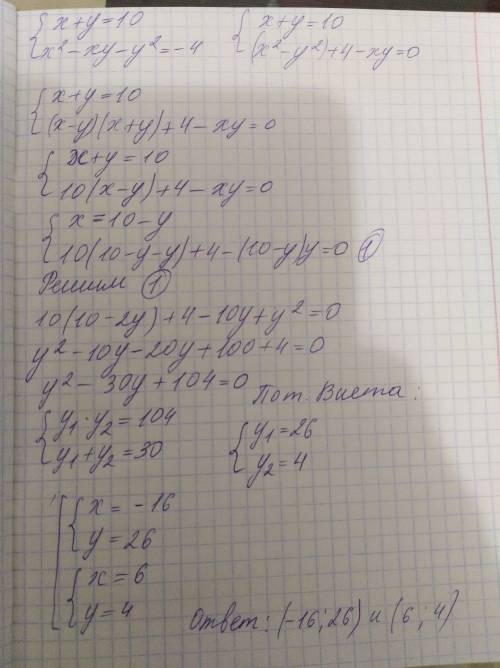 {x+y=10 {x+y=10
{x²-xy-y²=-4 {(x²-y²)+4-xy=0
{x+y=10
{(x-y)(x+y)+4-xy=0
{x+y=10
{10(x-y)+4-xy=0
{x=10-y
{10(10-y-y)+4-(10-y)y=0 ①
Решим ①
10(10-2y)+4-10y+y²=0
y²-10y-20y+100+4=0
y²-30y+104=0 По т. Виета:
{y₁·y₂=104 {y₁=26
{y₁+y₂=30 {y₂=4
[{x=-16
{y=26
{x=6
{y=4 Ответ: (-16;26) и (6;4)